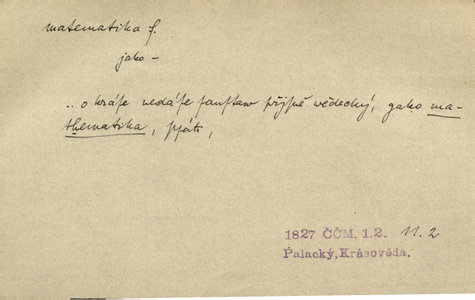 matematika f.
jako –
.. o kráse nedá se saustaw přjsně wědecký, gako ma-
thematika, psáti,
1827 ČČM, 1.2. 11.2
Palacký, Krásověda.